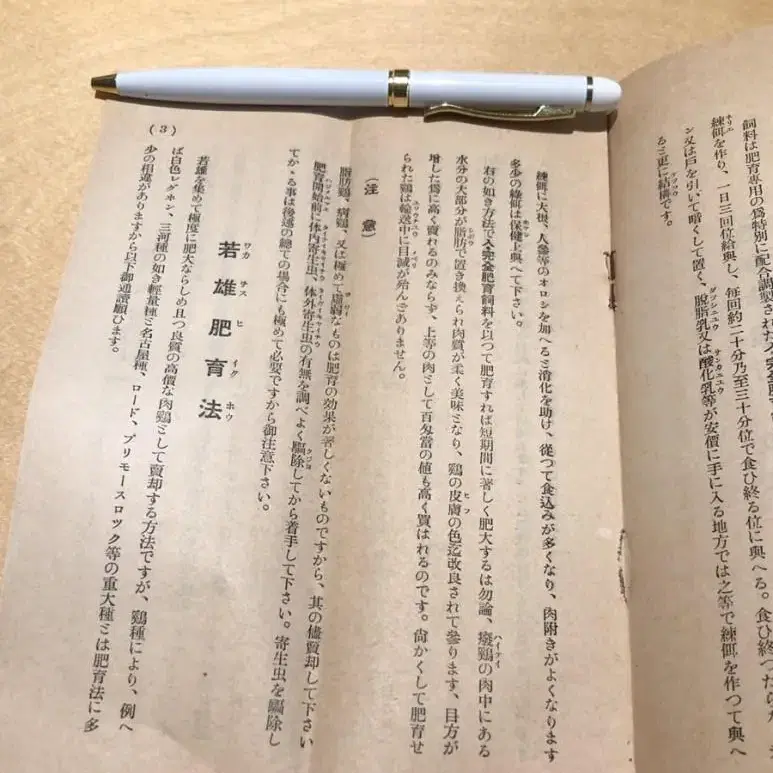 飼料は肥育専用の為特別に配合調製された
練餌を作り、一日三回位給與し、毎回約二十分乃至三十分位で食ひ終る位に與へる。食ひ終つたら
ン又は戸を引いて暗くして置く、脫脂乳又は酸化乳等が安價に手に入る地方では之等で練餌を作つて與へ
るミ更に結構です。
練餌に大根、人參等のオロシを加へるミ消化を助け、從つて食込みが多くなり、肉附きがよくなります
多少の綠餌は保健上與へて下さい。
右の如き方法で入完全肥育飼料を以つて肥育すれば短期間に著しく肥大するは勿論、癈鷄の肉中にある
水分の大部分が脂肪で置き換えられ肉質が柔く美味となり、鷄の皮膚の色迄改良されて參ります、目方が
增した爲に高く賣れるのみならず、上等の肉として百匁當の値も高く買はれるのです。尙かくして肥育せ
られた鷄は輸送中に目減が殆んさありません。
(注意)
脂肪鷄、病鷄、又は極めて虛弱なものは肥育の効果が著しくないものですから、其の儘賣却して下さい
肥育開始前に体內寄生虫、体外寄生虫の有無を調べよく驅除してから着手して下さい。寄生虫を驅除し
てかゝる事は後述の總ての場合にも極めて必要ですから御注意下さい。
若雄肥育法
ワカ チス ヒ イク ホウ
若雄を集めて極度に肥大ならしめ且つ良質の高價な肉鷄として賣却する方法ですが、鷄種により、例へ
ば白色レグホン、三河種の如き輕量種ミ名古屋種、ロード、プリモースロック等の重大種ミは肥育法に多
少の相違がありますから以下御通讀願ひます。
(3)